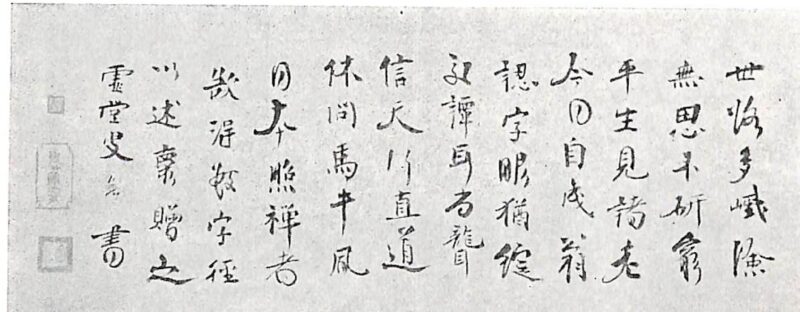 世路多巇嶮
無思不研窮
平生見諸老
今日自成翁
認字眼猶綻
交譚耳尚聾
信天行直道
休問馬牛風
日本照禅者
欲得数字徑
以述藁贈之
虚堂叟書